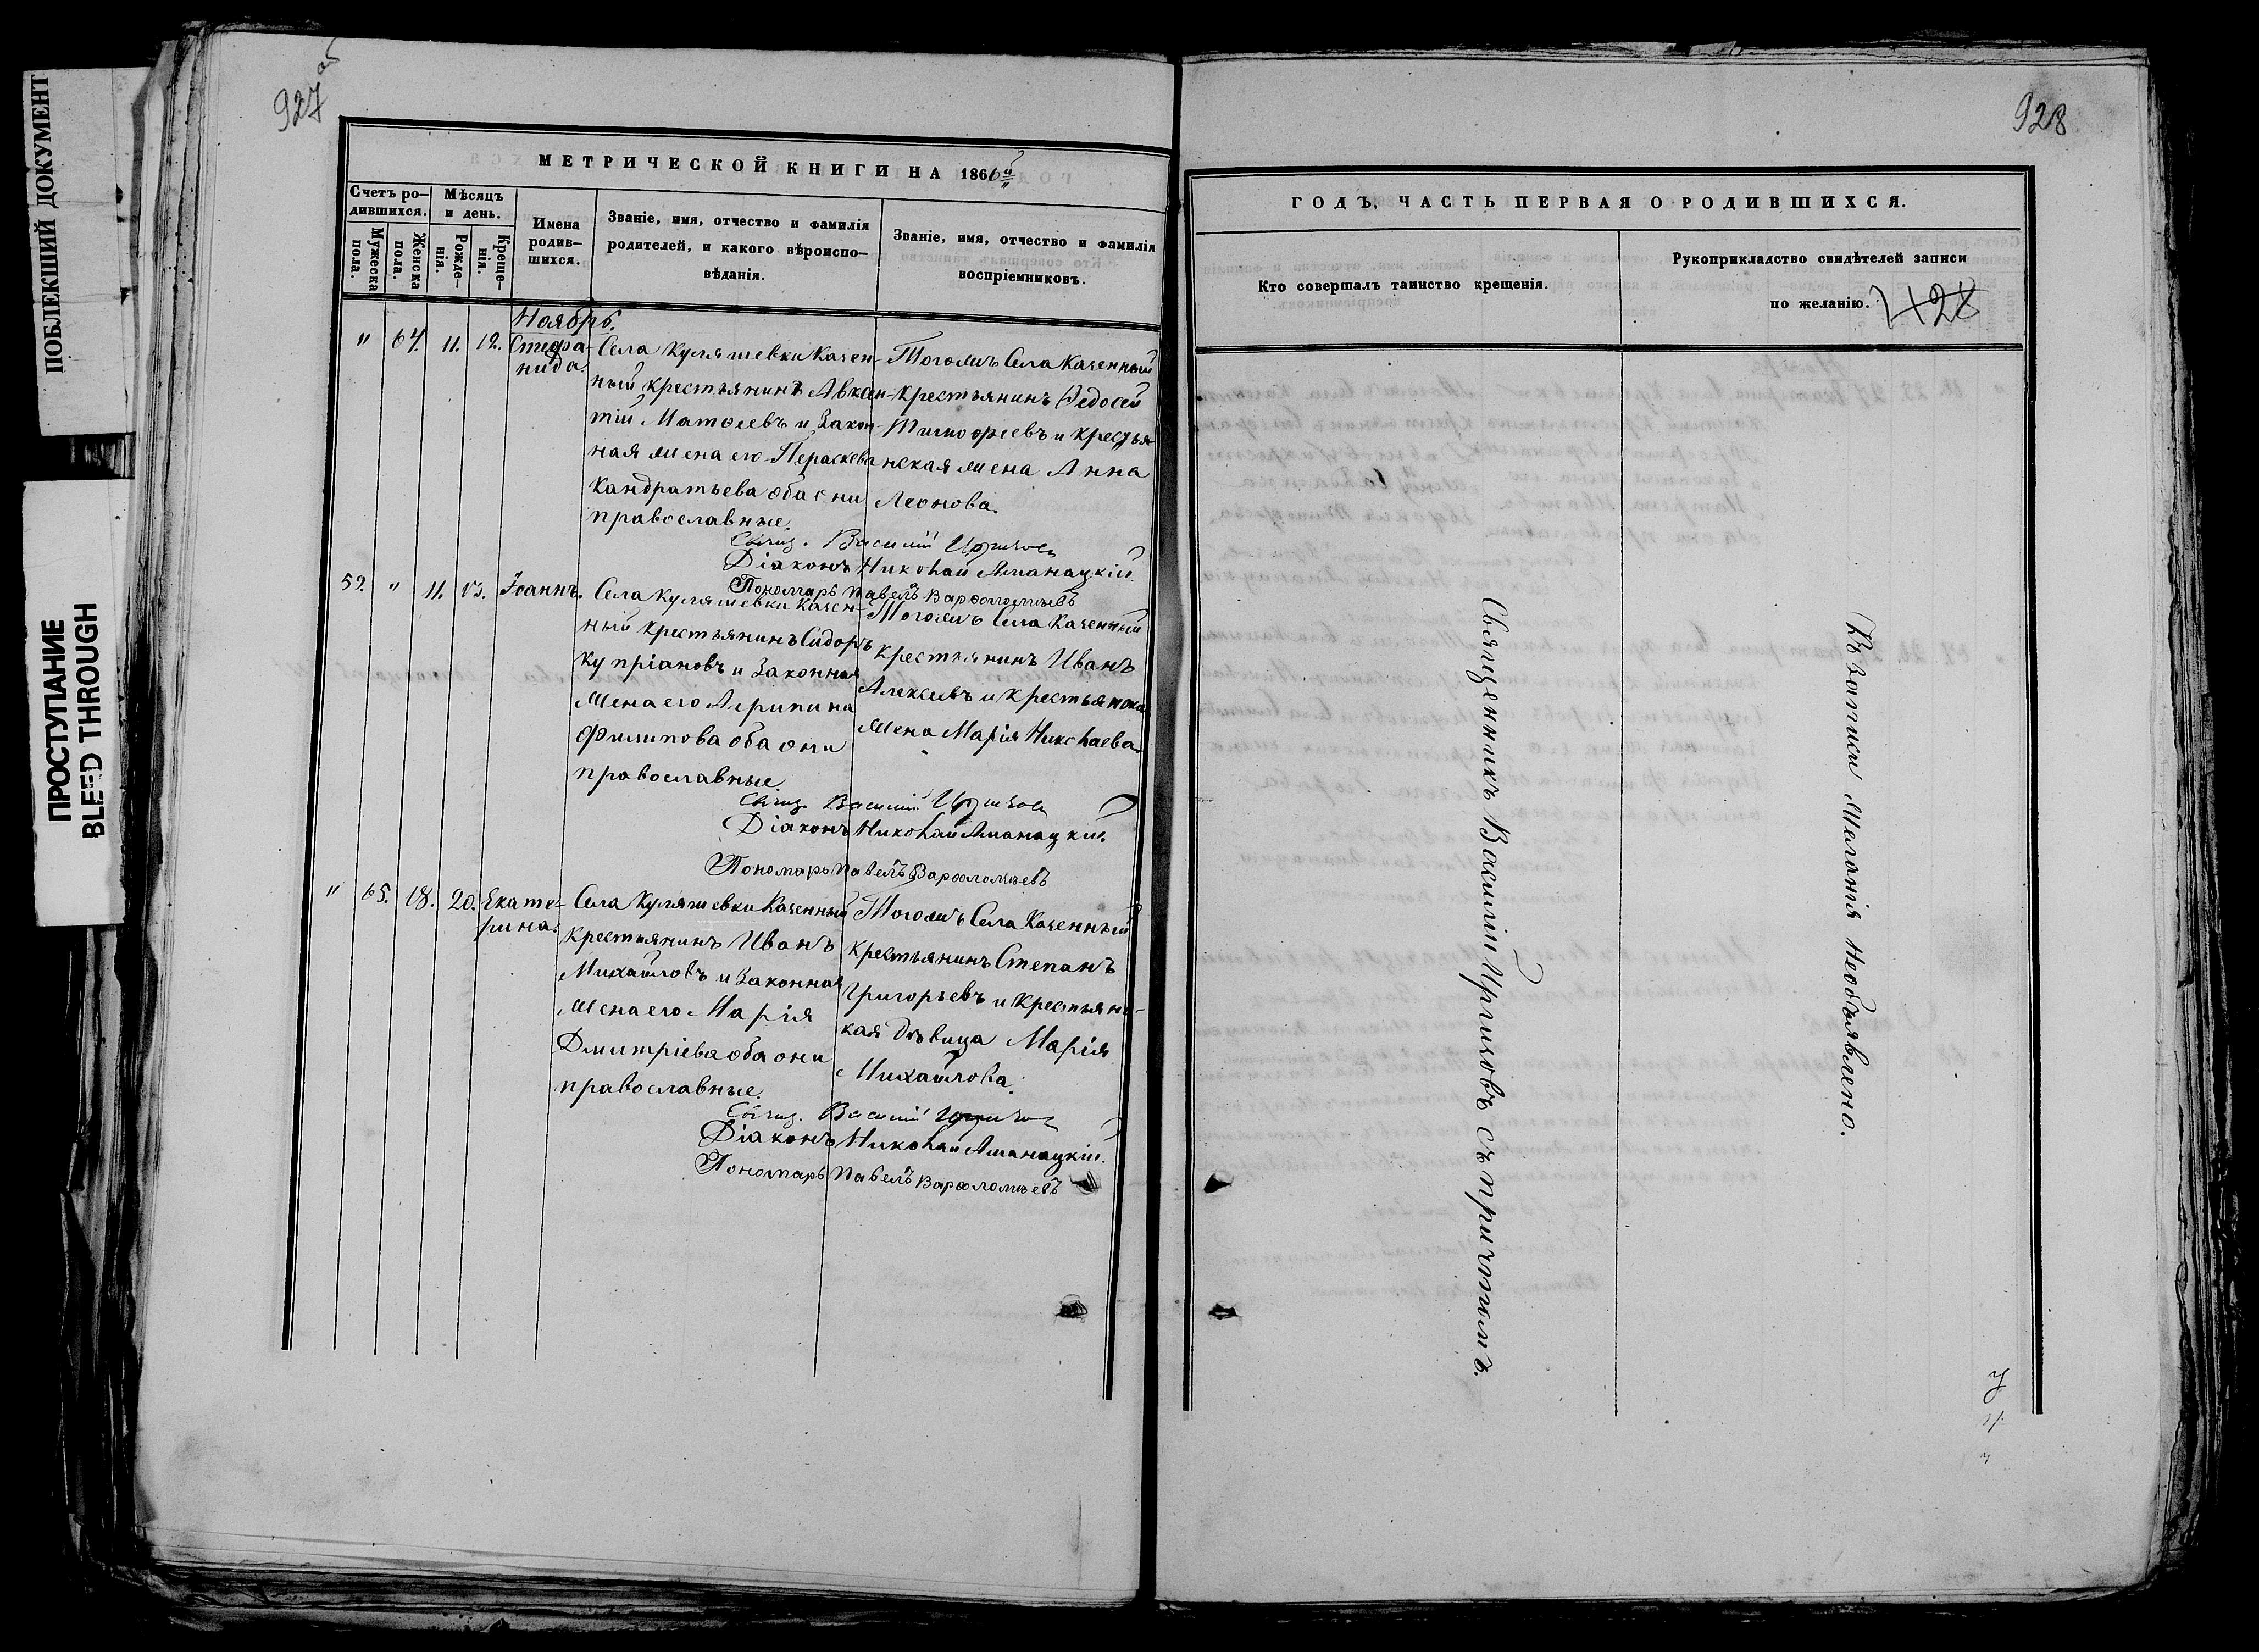 ПОБЛЕКШИЙ ДОКУМЕНТ
ПРОСТУПАНИЕ
BLEED THROUGH
927 об
МЕТРИЧЕСКОЙ КНИГИ НА 1866й
Счетъ ро-
дившихся.
Мужеска
пола.
Женска
пола.
Мѣсяцъ
и день.
Рожде-
нія.
Креще-
нія.
Имена
родив-
шихся.
Званіе, имя, отчество и фамилія
родителей, и какого вѣроиспо-
вѣданія.
Званіе, имя, отчество и фамилія
воспріемниковъ.
Ноябрь.
" 64. 11. 12. Стефа-
нида.
Села Куляшевки Казен-
ный крестьянинъ Авксен-
тій Матѳеевъ и Закон-
ная жена его Параскева
Кандратьева оба они
православные.
Тогожъ Села Казенный
крестьянинъ Ѳедосей
Тимоѳеевъ и крестья-
нская жена Анна
Леонова.
Свящ. Василій
Діаконъ Николай Аманацкій.
Пономарь Павелъ Варѳоломеевъ
59. " 11. 13. Іоаннъ.
Села Куляшевки Казен-
ный крестьянинъ Сидоръ
Купріановъ и Законная
жена его Агрипина
Филипова оба они
православные.
Тогожъ Села Казенный
крестьянинъ Иванъ
Алексеевъ и крестьянска
жена Марія Николаева.
Свящ. Василій
Діаконъ Николай Аманацкій.
Пономарь Павелъ Варѳоломѣевъ
" 65. 18. 20. Екате-
рина.
Села Куляшевки Казенный
крестьянинъ Иванъ
Михайловъ и Законная
жена его Марія
Дмитріева оба они
православные.
Тогожъ Села Казенный
крестьянинъ Степанъ
Григорьевъ и крестьянс-
кая дѣвица Марія
Михайлова.
Свящ. Василій
Діаконъ Николай Аманацкій.
Пономарь Павелъ Варѳоломѣевъ
928
ГОДЪ, ЧАСТЬ ПЕРВАЯ О РОДИВШИХСЯ.
Кто совершалъ таинство крещенія.
Рукоприкладство свидѣтелей записи
по желанію.
428
Священникъ Василій съ причтомъ.
Къ записи желанія необъявлено.